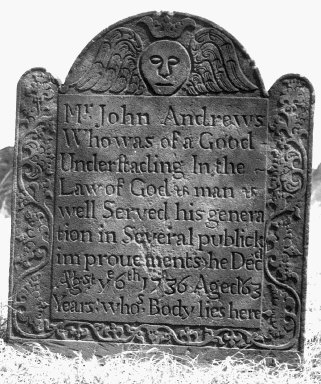 Mr John Andrews
Who was of a Good
Underſtading In the
Law of God as man as
well Served his genera
tion in Several publick
improuements he Decd
Augst ye 6th 1736 Aged 63
Years whos Body lies here